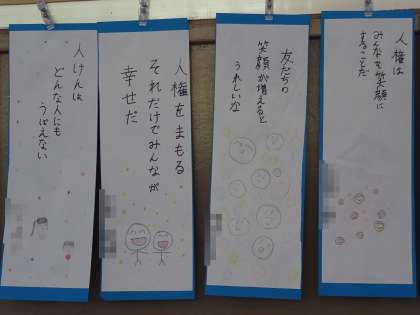 人権は
みんなを笑顔に
することだ
友だちの
笑顔が増えると
うれしいな
人権をまもる
それだけでみんなが
幸せだ
人けんは
どんな人にも
うばえない